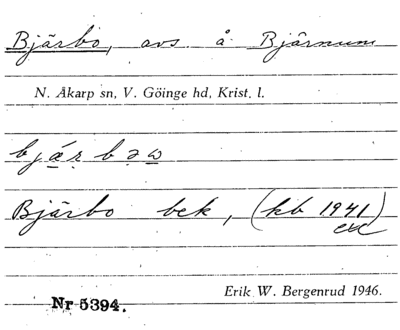 Bjärbo, avs å Bjärnum
N. Åkarp sn, V. Göinge hd, Krist. l.
bjæ̱r̤ bəw̱
Bjärbo bek, (kb 1941)
exc
Erik W. Bergenrud 1946.
Nr 5394.